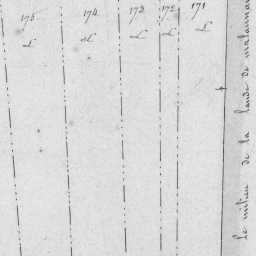 175 174 173 172 171
L L L L L
le milieu de la lande de malaunay